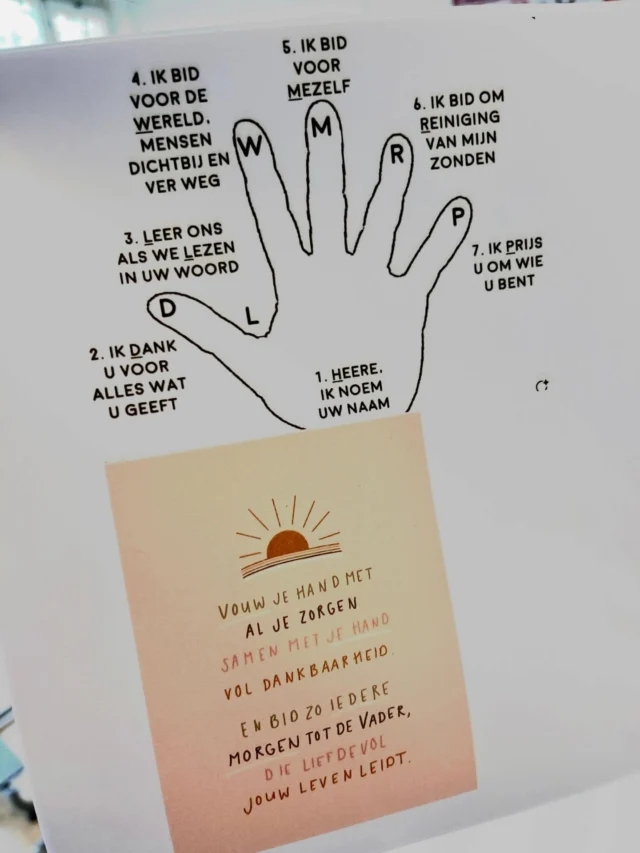 5. IK BID
VOOR
MEZELF
4. IK BID
VOOR DE
WERELD.
MENSEN
DICHTBIJ EN
VER WEG
6. IK BID OM
REINIGING
VAN MIJN
ZONDEN
W
M
R
P
3. LEER ONS
ALS WE LEZEN
IN UW WOORD
7. IK PRIJS
U OM WIE
U BENT
D
L
2. IK DANK
U VOOR
ALLES WAT
U GEEFT
1. HEERE,
IK NOEM
UW NAAM
VOUW JE HAND MET
AL JE ZORGEN
SAMEN MET JE HAND
VOL DANKBAARHEID.
EN BID ZO IEDERE
MORGEN TOT DE VADER,
DIE LIEFDEVOL
JOUW LEVEN LEIDT.